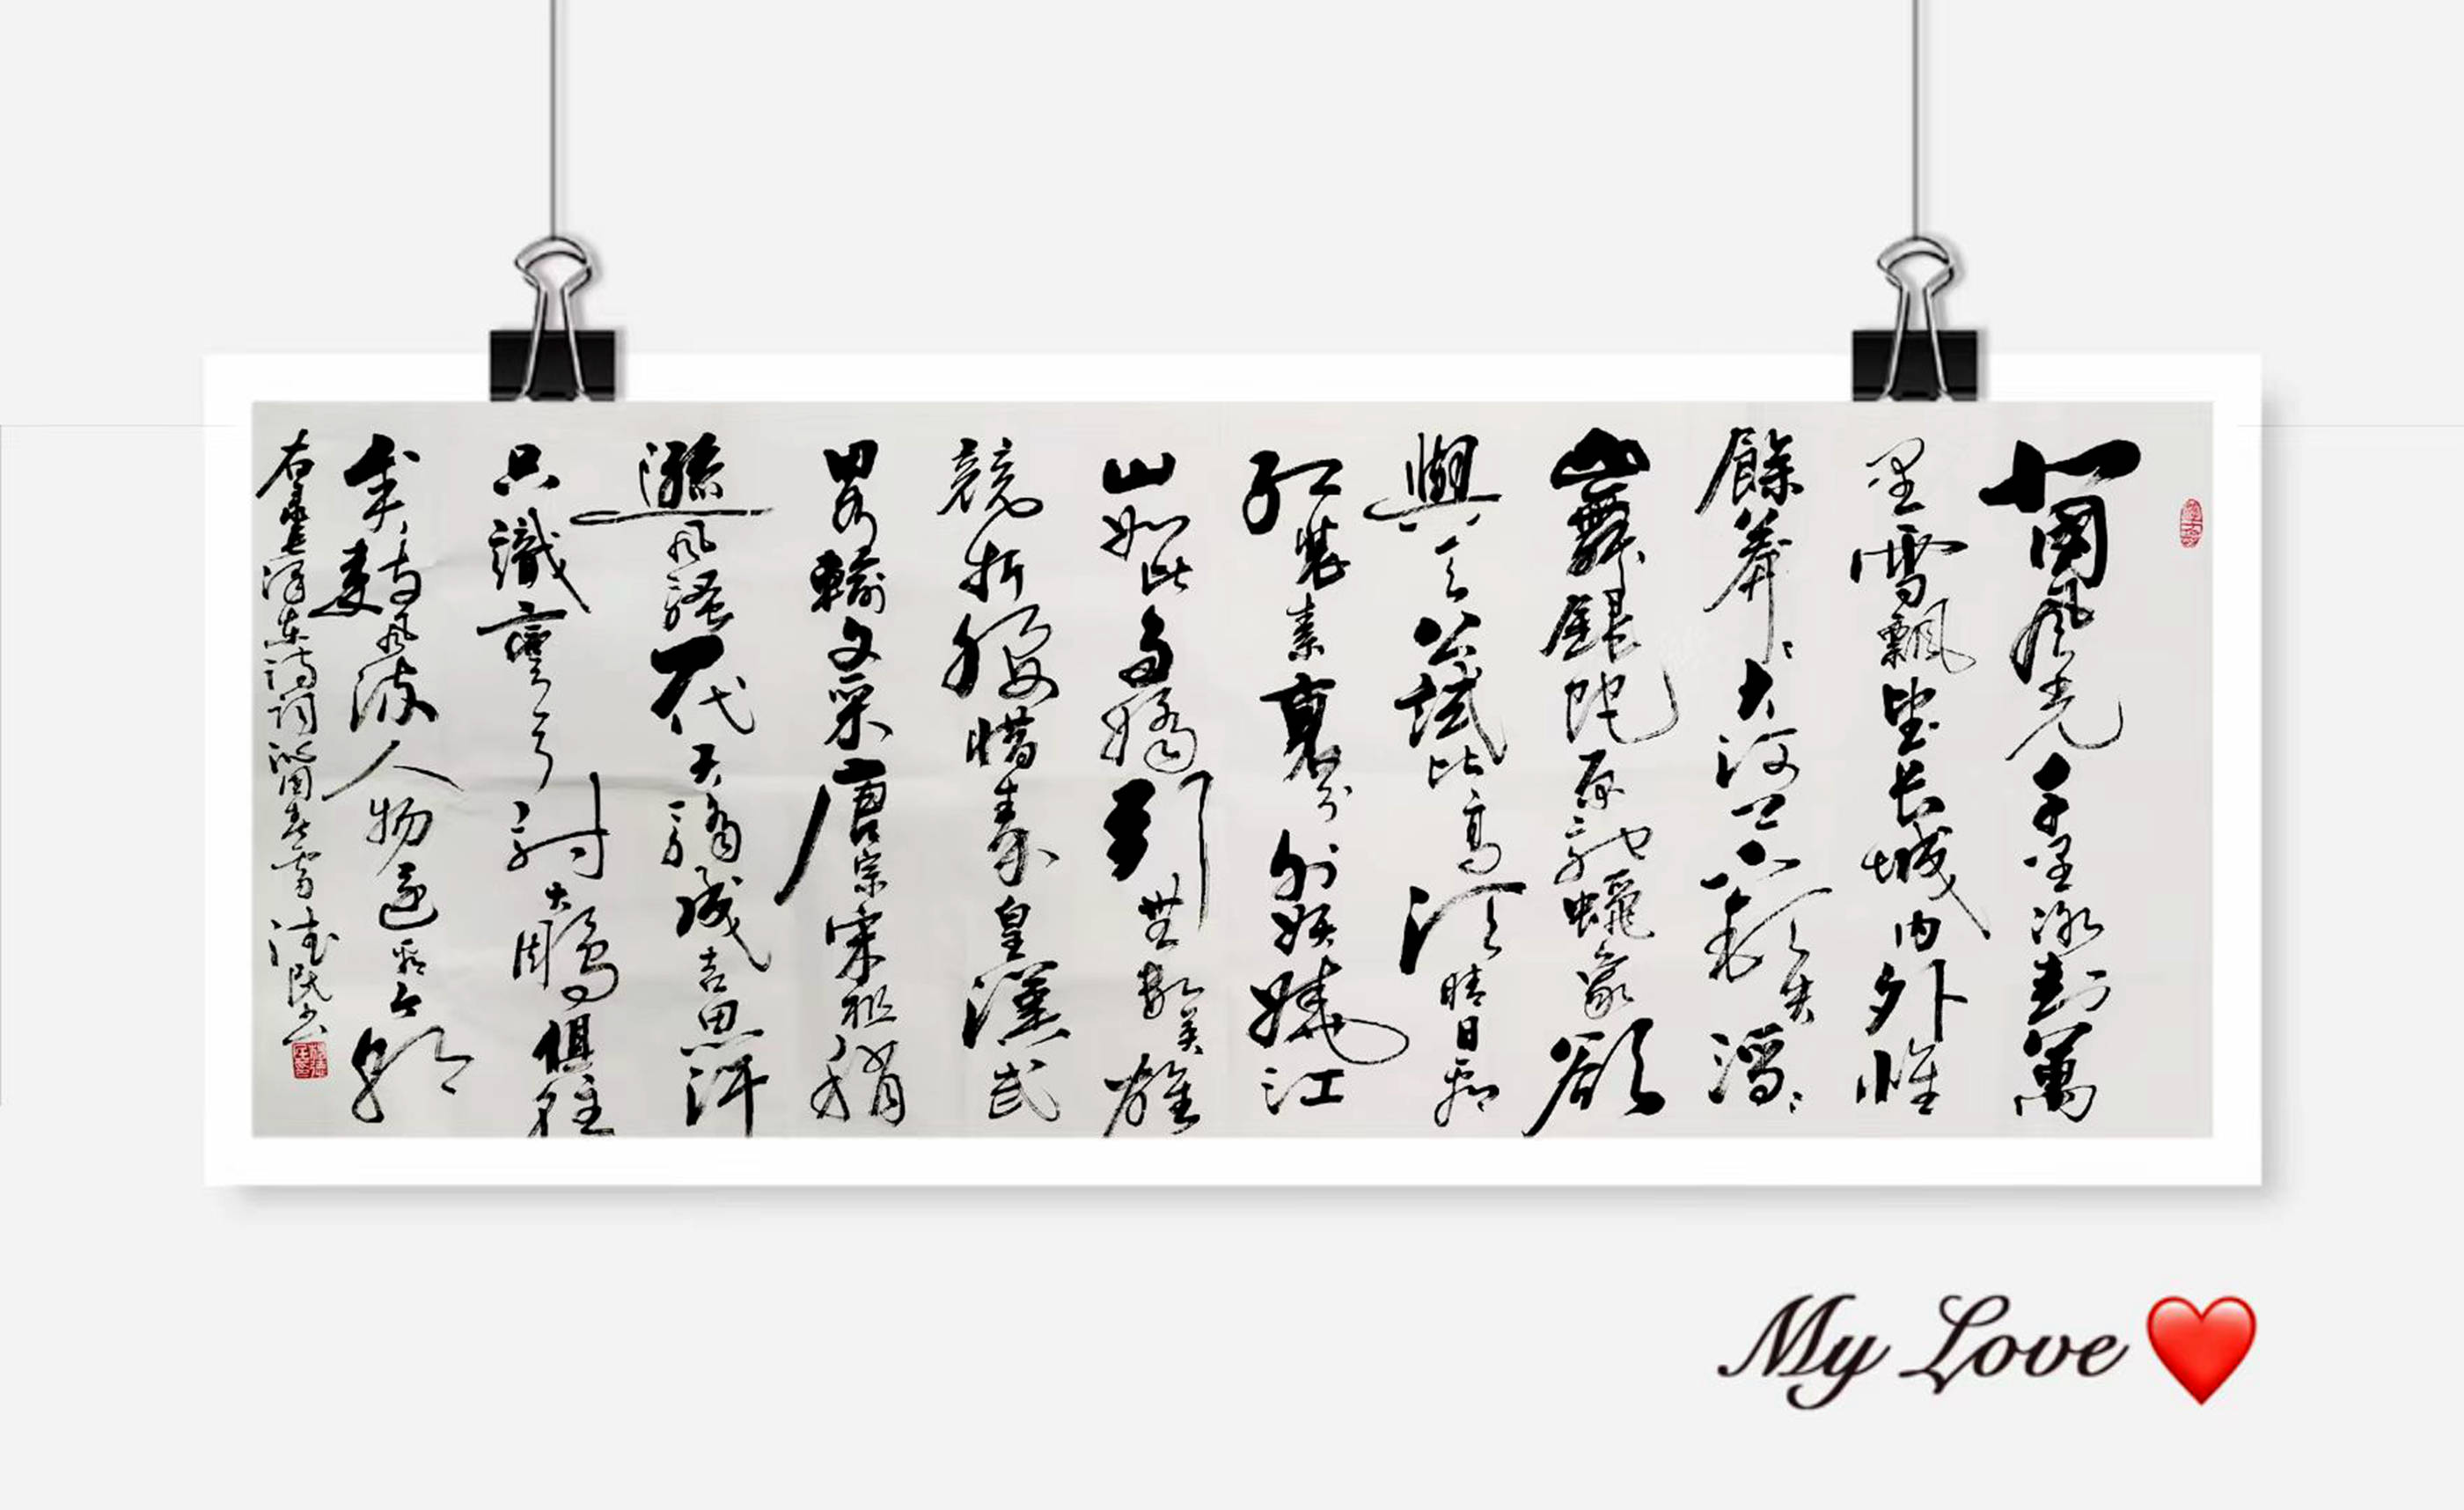 北國風光千里冰封萬
里雪飄望长城内外惟
餘莽々大河上下頓失滔々
山舞銀蛇原馳蠟象欲
與天公試比高須晴日看
红装素裹分外妖嬈江
山如此多嬌引無數英雄
競折腰惜秦皇漢武
畧輸文采唐宗宋祖稍
遜風騷一代天驕成吉思汗
只識彎弓射大雕俱往
矣數風流人物還看今朝
右录毛泽东詩詞沁園春雪
My Love ❤️